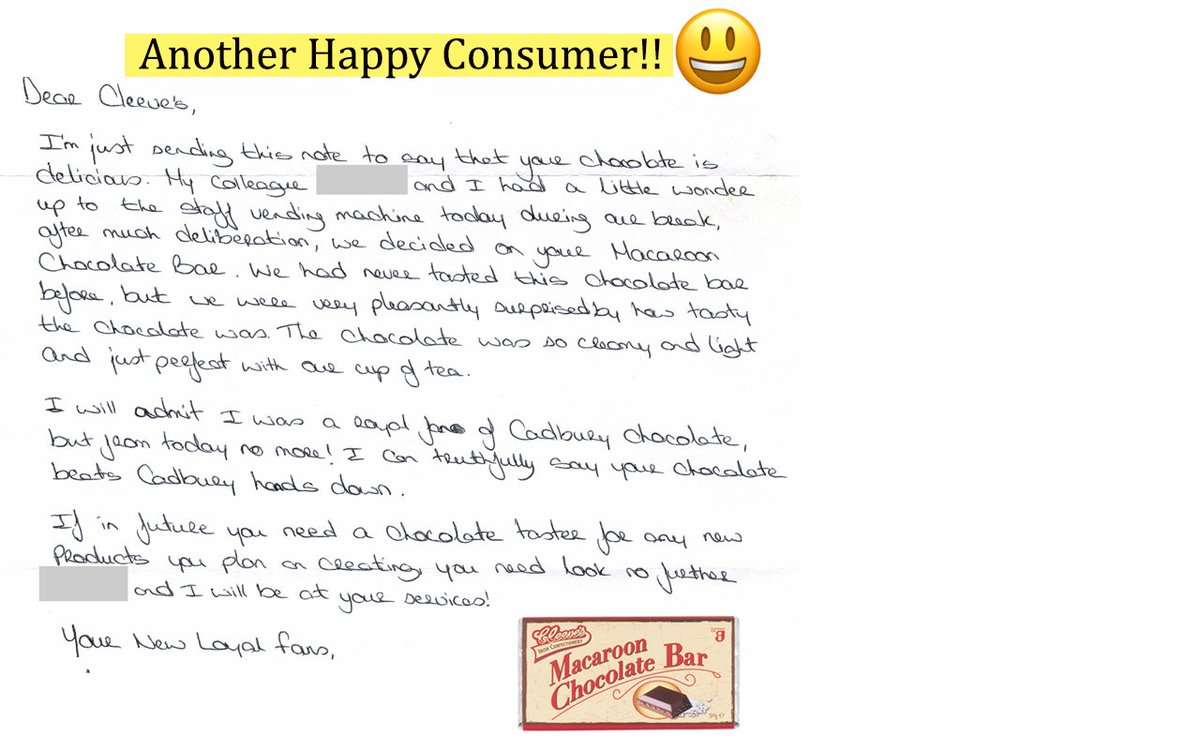 Another Happy Consumer!!
Dear Cleeve's,
I'm just sending this note to say that your chocolate is
delicious. My colleague and I had a little wonder
up to the staff vending machine today during our break,
after much deliberation, we decided on your Macaroon
Chocolate Bar. We had never tasted this chocolate bar
before, but we were very pleasantly surprised by how tasty
the chocolate was. The chocolate was so creamy and light
and just perfect with our cup of tea.
I will admit I was a loyal fans of Cadbury chocolate,
but from today no more! I can truthfully say your chocolate
beats Cadbury hands down.
If in future you need a chocolate taster for any new
products you plan on creating, you need look no further
and I will be at your services!
Your New Loyal fans,
Cleeve's
IRISH CONFECTIONERY
Macaroon
Chocolate Bar
50g e